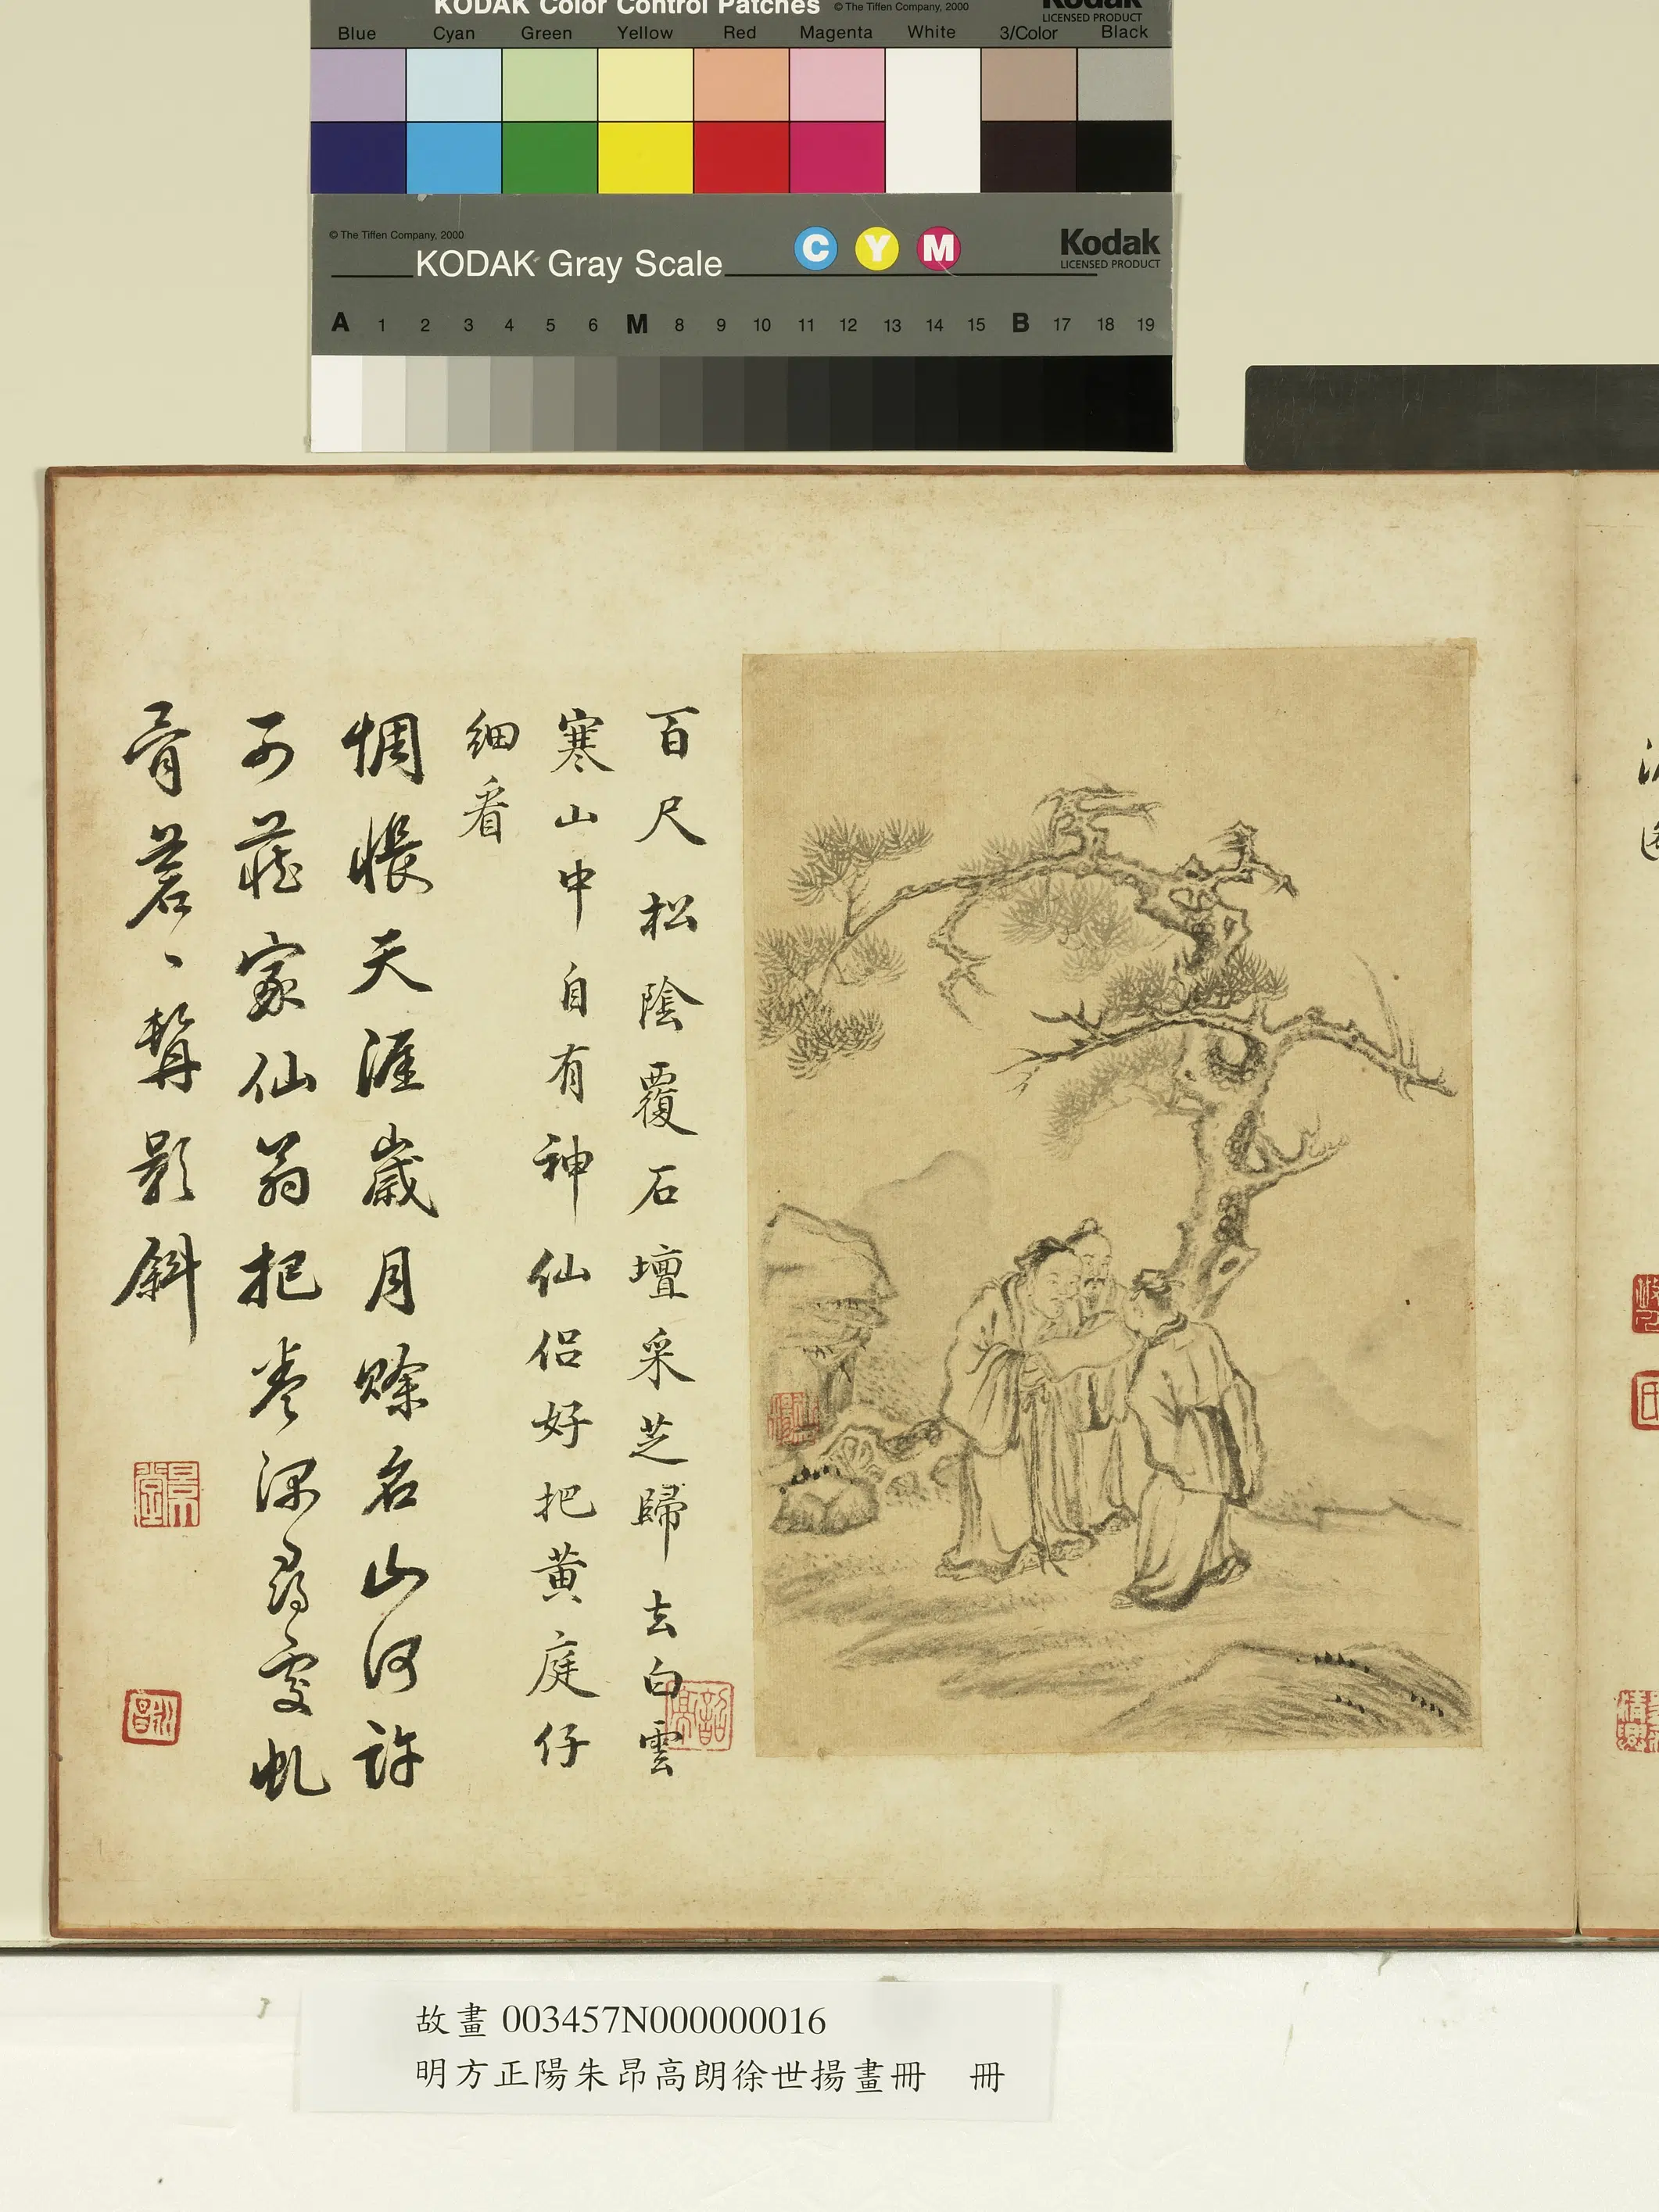 KODAK Color Control Patches © The Tiffen Company, 2000 Kodak
LICENSED PRODUCT
Blue Cyan Green Yellow Red Magenta White 3/Color Black
© The Tiffen Company, 2000
KODAK Gray Scale C Y M Kodak
LICENSED PRODUCT
A 1 2 3 4 5 6 M 8 9 10 11 12 13 14 15 B 17 18 19
百尺松陰覆石壇采芝歸去白雲
寒山中自有神仙侶好把黃庭仔
細看
惆悵天涯歲月賒名山何許
可家仙翁把卷深尋處
蒼〻鬢影斜
故畫 003457N000000016
明方正陽朱昂高朗徐世揚畫冊 冊